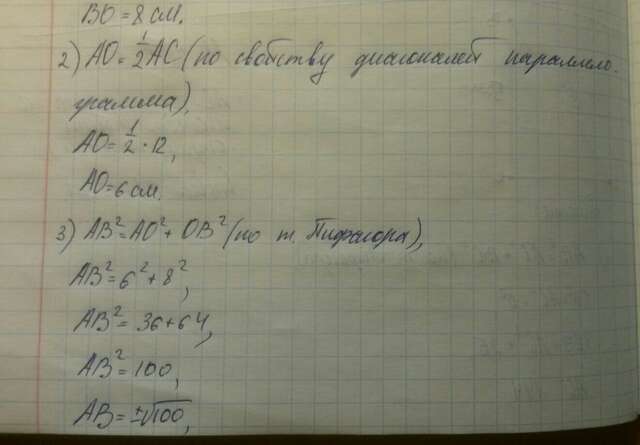 BO = 8 см.
2) AO = 1/2 AC (по свойству диагоналей параллело-
грамма),
AO = 1/2 · 12,
AO = 6 см.
3) AB² = AO² + OB² (по т. Пифагора),
AB² = 6² + 8²,
AB² = 36 + 64,
AB² = 100,
AB = ±√100,